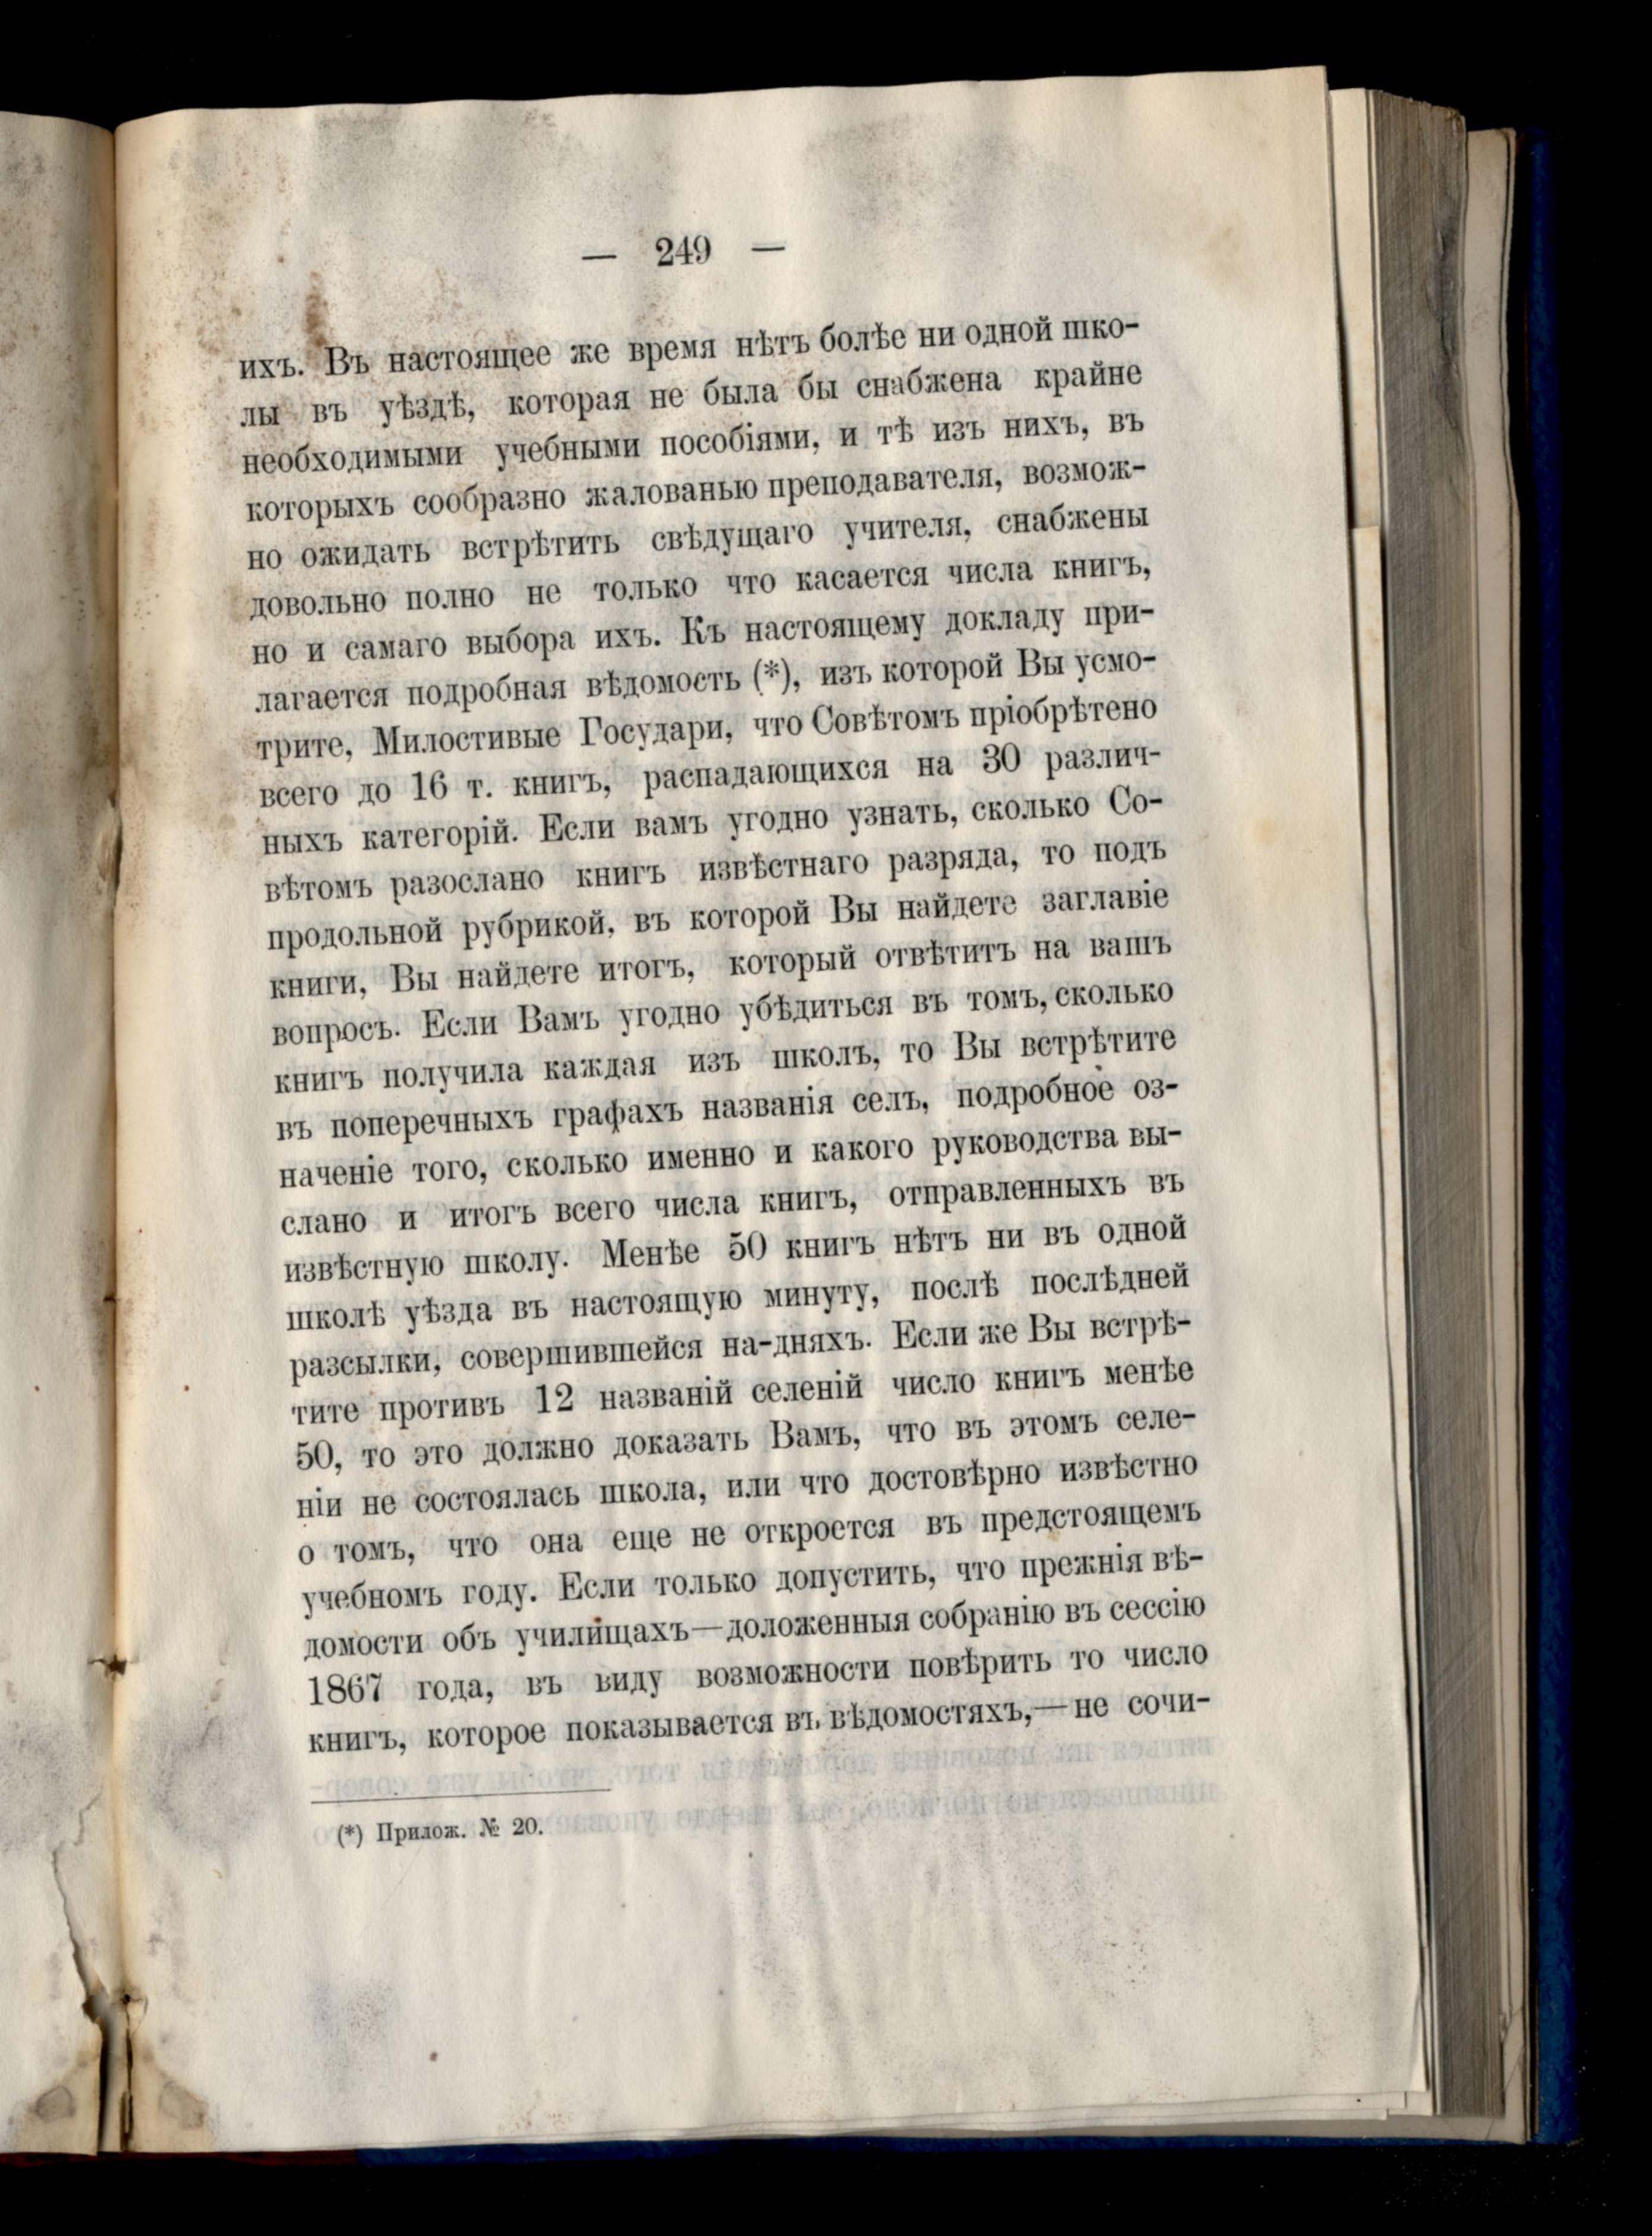 — 249 —
ихъ. Въ настоящее же время нѣтъ болѣе ни одной шко-
лы въ уѣздѣ, которая не была бы снабжена крайне
необходимыми учебными пособіями, и тѣ изъ нихъ, въ
которыхъ сообразно жалованью преподавателя, возмож-
но ожидать встрѣтить свѣдущаго учителя, снабжены
довольно полно не только что касается числа книгъ,
но и самаго выбора ихъ. Къ настоящему докладу при-
лагается подробная вѣдомость (*), изъ которой Вы усмо-
трите, Милостивые Государи, что Совѣтомъ пріобрѣтено
всего до 16 т. книгъ, распадающихся на 30 различ-
ныхъ категорій. Если вамъ угодно узнать, сколько Со-
вѣтомъ разослано книгъ извѣстнаго разряда, то подъ
продольной рубрикой, въ которой Вы найдете заглавіе
книги, Вы найдете итогъ, который отвѣтитъ на вашъ
вопросъ. Если Вамъ угодно убѣдиться въ томъ, сколько
книгъ получила каждая изъ школъ, то Вы встрѣтите
въ поперечныхъ графахъ названія селъ, подробное оз-
наченіе того, сколько именно и какого руководства вы-
слано и итогъ всего числа книгъ, отправленныхъ въ
извѣстную школу. Менѣе 50 книгъ нѣтъ ни въ одной
школѣ уѣзда въ настоящую минуту, послѣ послѣдней
разсылки, совершившейся на-дняхъ. Если же Вы встрѣ-
тите противъ 12 названій селеній число книгъ менѣе
50, то это должно доказать Вамъ, что въ этомъ селе-
ніи не состоялась школа, или что достовѣрно извѣстно
о томъ, что она еще не откроется въ предстоящемъ
учебномъ году. Если только допустить, что прежнія вѣ-
домости объ училищахъ—доложенныя собранію въ сессію
1867 года, въ виду возможности повѣрить то число
книгъ, которое показывается въ вѣдомостяхъ,—не сочи-
(*) Прилож. № 20.